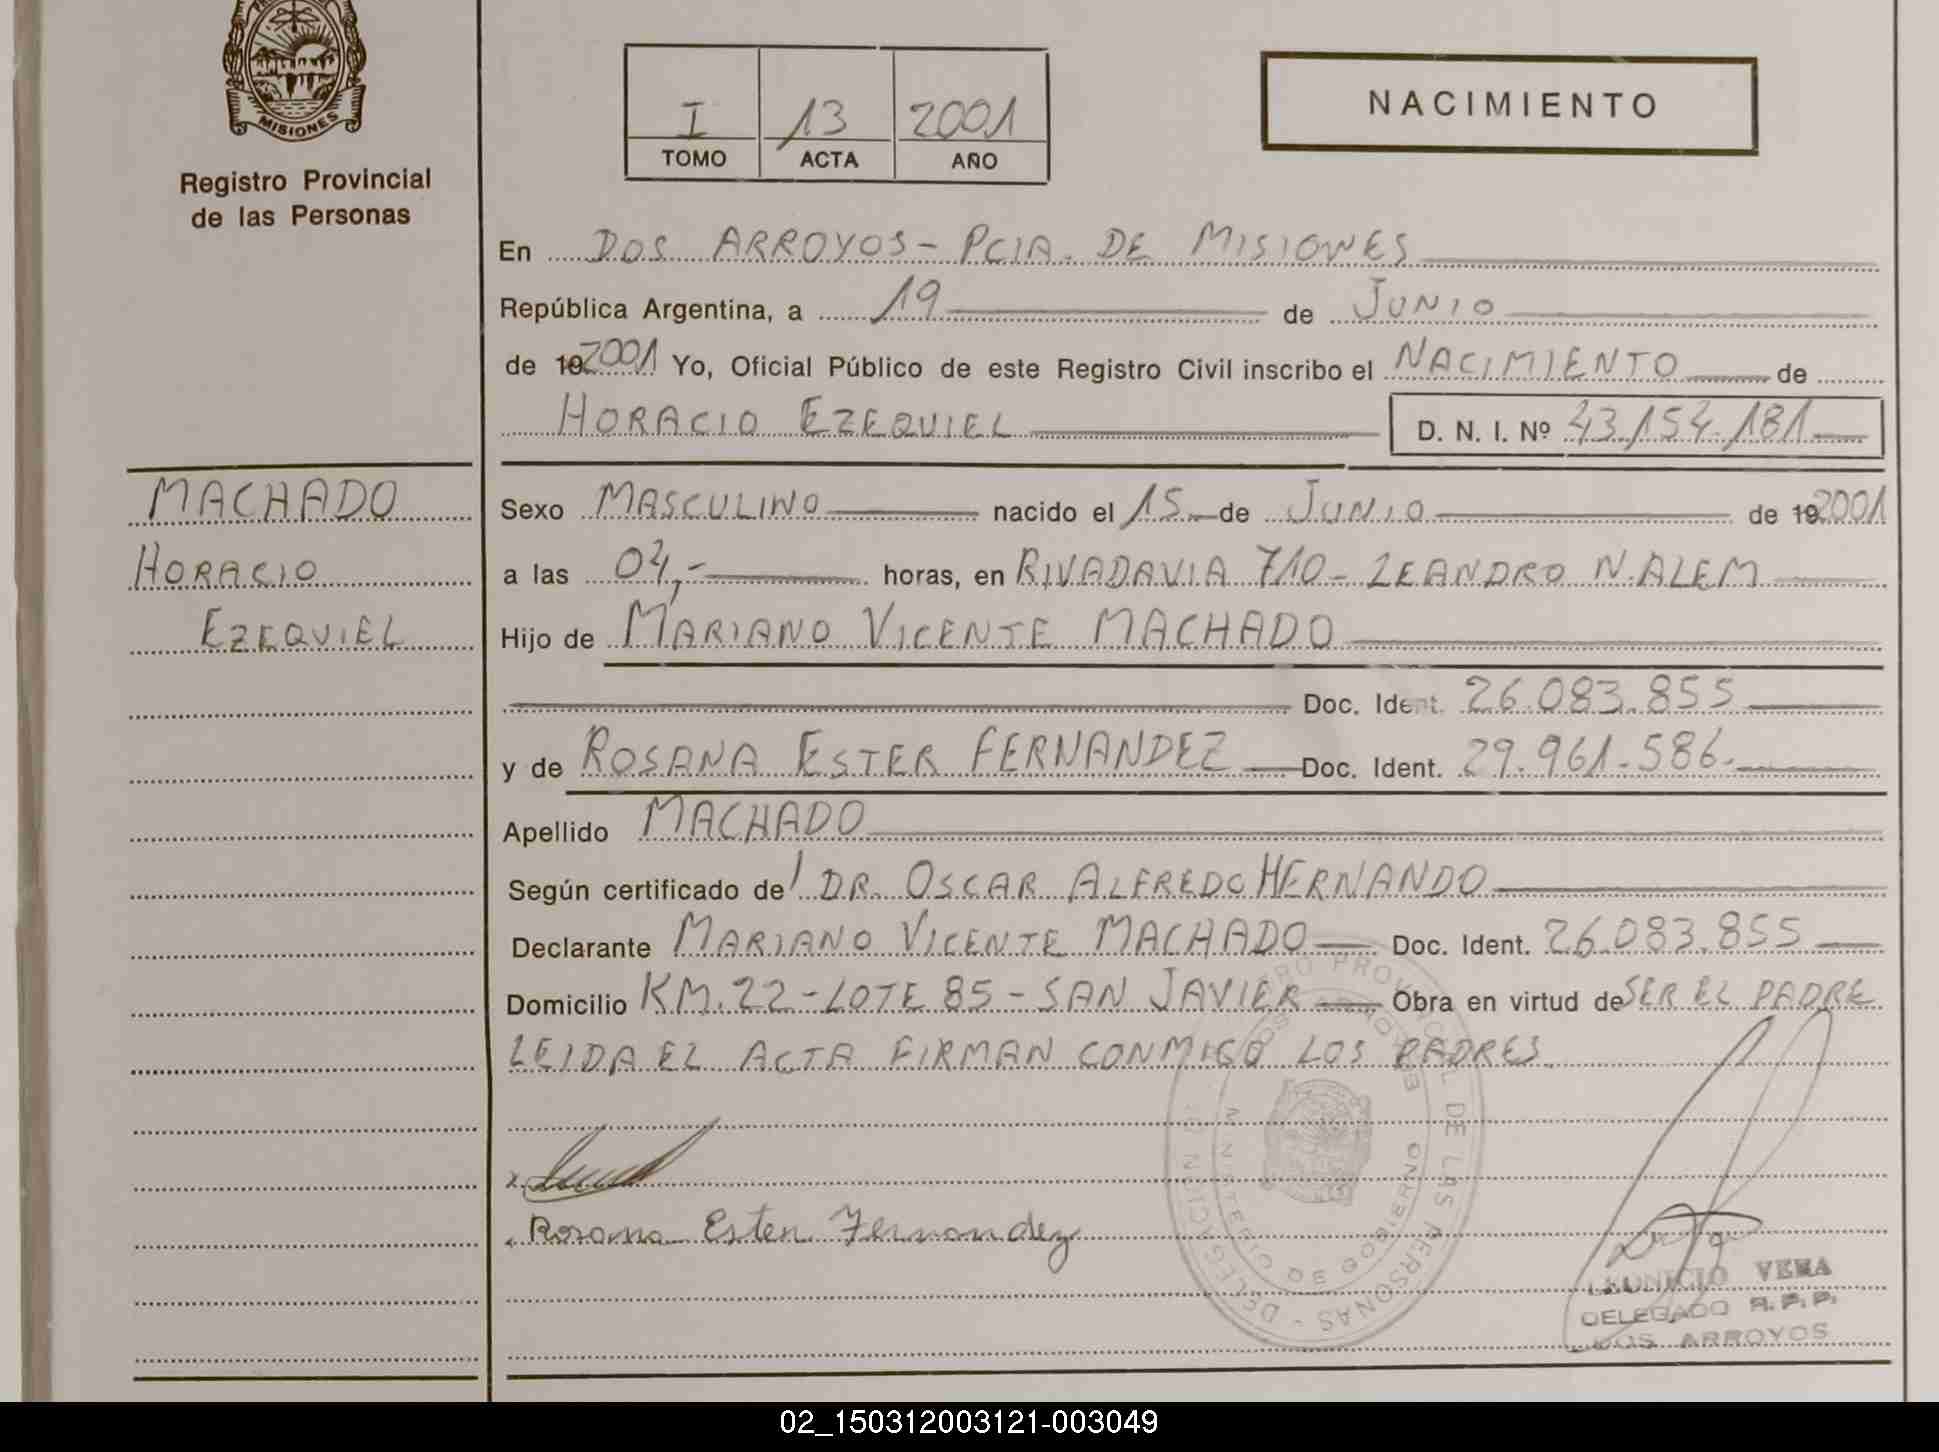 MISIONES
Registro Provincial
de las Personas
I 13 2001
TOMO ACTA AÑO
NACIMIENTO
En DOS ARROYOS - PCIA. DE MISIONES
República Argentina, a 19 de JUNIO
de 19 2001 Yo, Oficial Público de este Registro Civil inscribo el NACIMIENTO de
HORACIO EZEQUIEL D. N. I. Nº 43.154.181
MACHADO
HORACIO
EZEQUIEL
Sexo MASCULINO nacido el 15 de JUNIO de 19 2001
a las 04,- horas, en RIVADAVIA 710 - LEANDRO N. ALEM
Hijo de MARIANO VICENTE MACHADO
Doc. Ident. 26.083.855
y de ROSANA ESTER FERNANDEZ Doc. Ident. 29.961.586.
Apellido MACHADO
Según certificado de DR. OSCAR ALFREDO HERNANDO
Declarante MARIANO VICENTE MACHADO Doc. Ident. 26.083.855
Domicilio KM. 22 - LOTE 85 - SAN JAVIER Obra en virtud de SER EL PADRE
LEIDA EL ACTA FIRMAN CONMIGO LOS PADRES
REGISTRO PROVINCIAL DE LAS PERSONAS - DELEGACION
MINISTERIO DE GOBIERNO
Rosana Ester Fernandez
LEONICIO VERA
DELEGADO R. P. P.
DOS ARROYOS
02_150312003121-003049